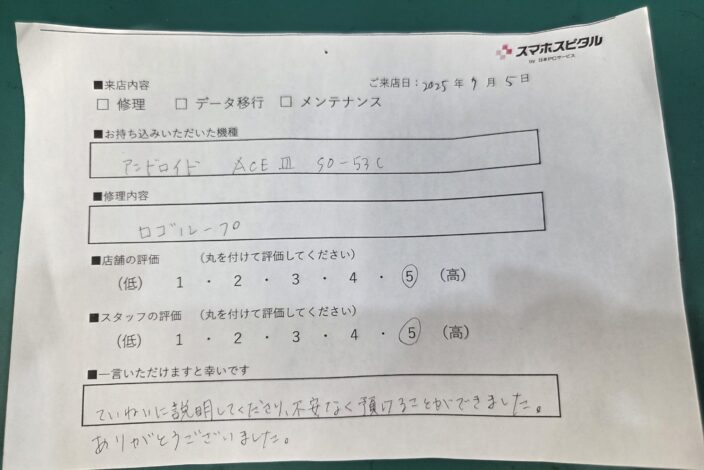 スマホスピタル
by 日本PCサービス
■来店内容
ご来店日：2025年9月5日
□ 修理 □ データ移行 □ メンテナンス
■お持ち込みいただいた機種
アンドロイド ACE III SO-53C
■修理内容
ロゴループ
■店舗の評価 （丸を付けて評価してください）
（低） 1 ・ 2 ・ 3 ・ 4 ・ 5 （高）
■スタッフの評価 （丸を付けて評価してください）
（低） 1 ・ 2 ・ 3 ・ 4 ・ 5 （高）
■一言いただけますと幸いです
ていねいに説明してくださり、不安なく預けることができました。
ありがとうございました。